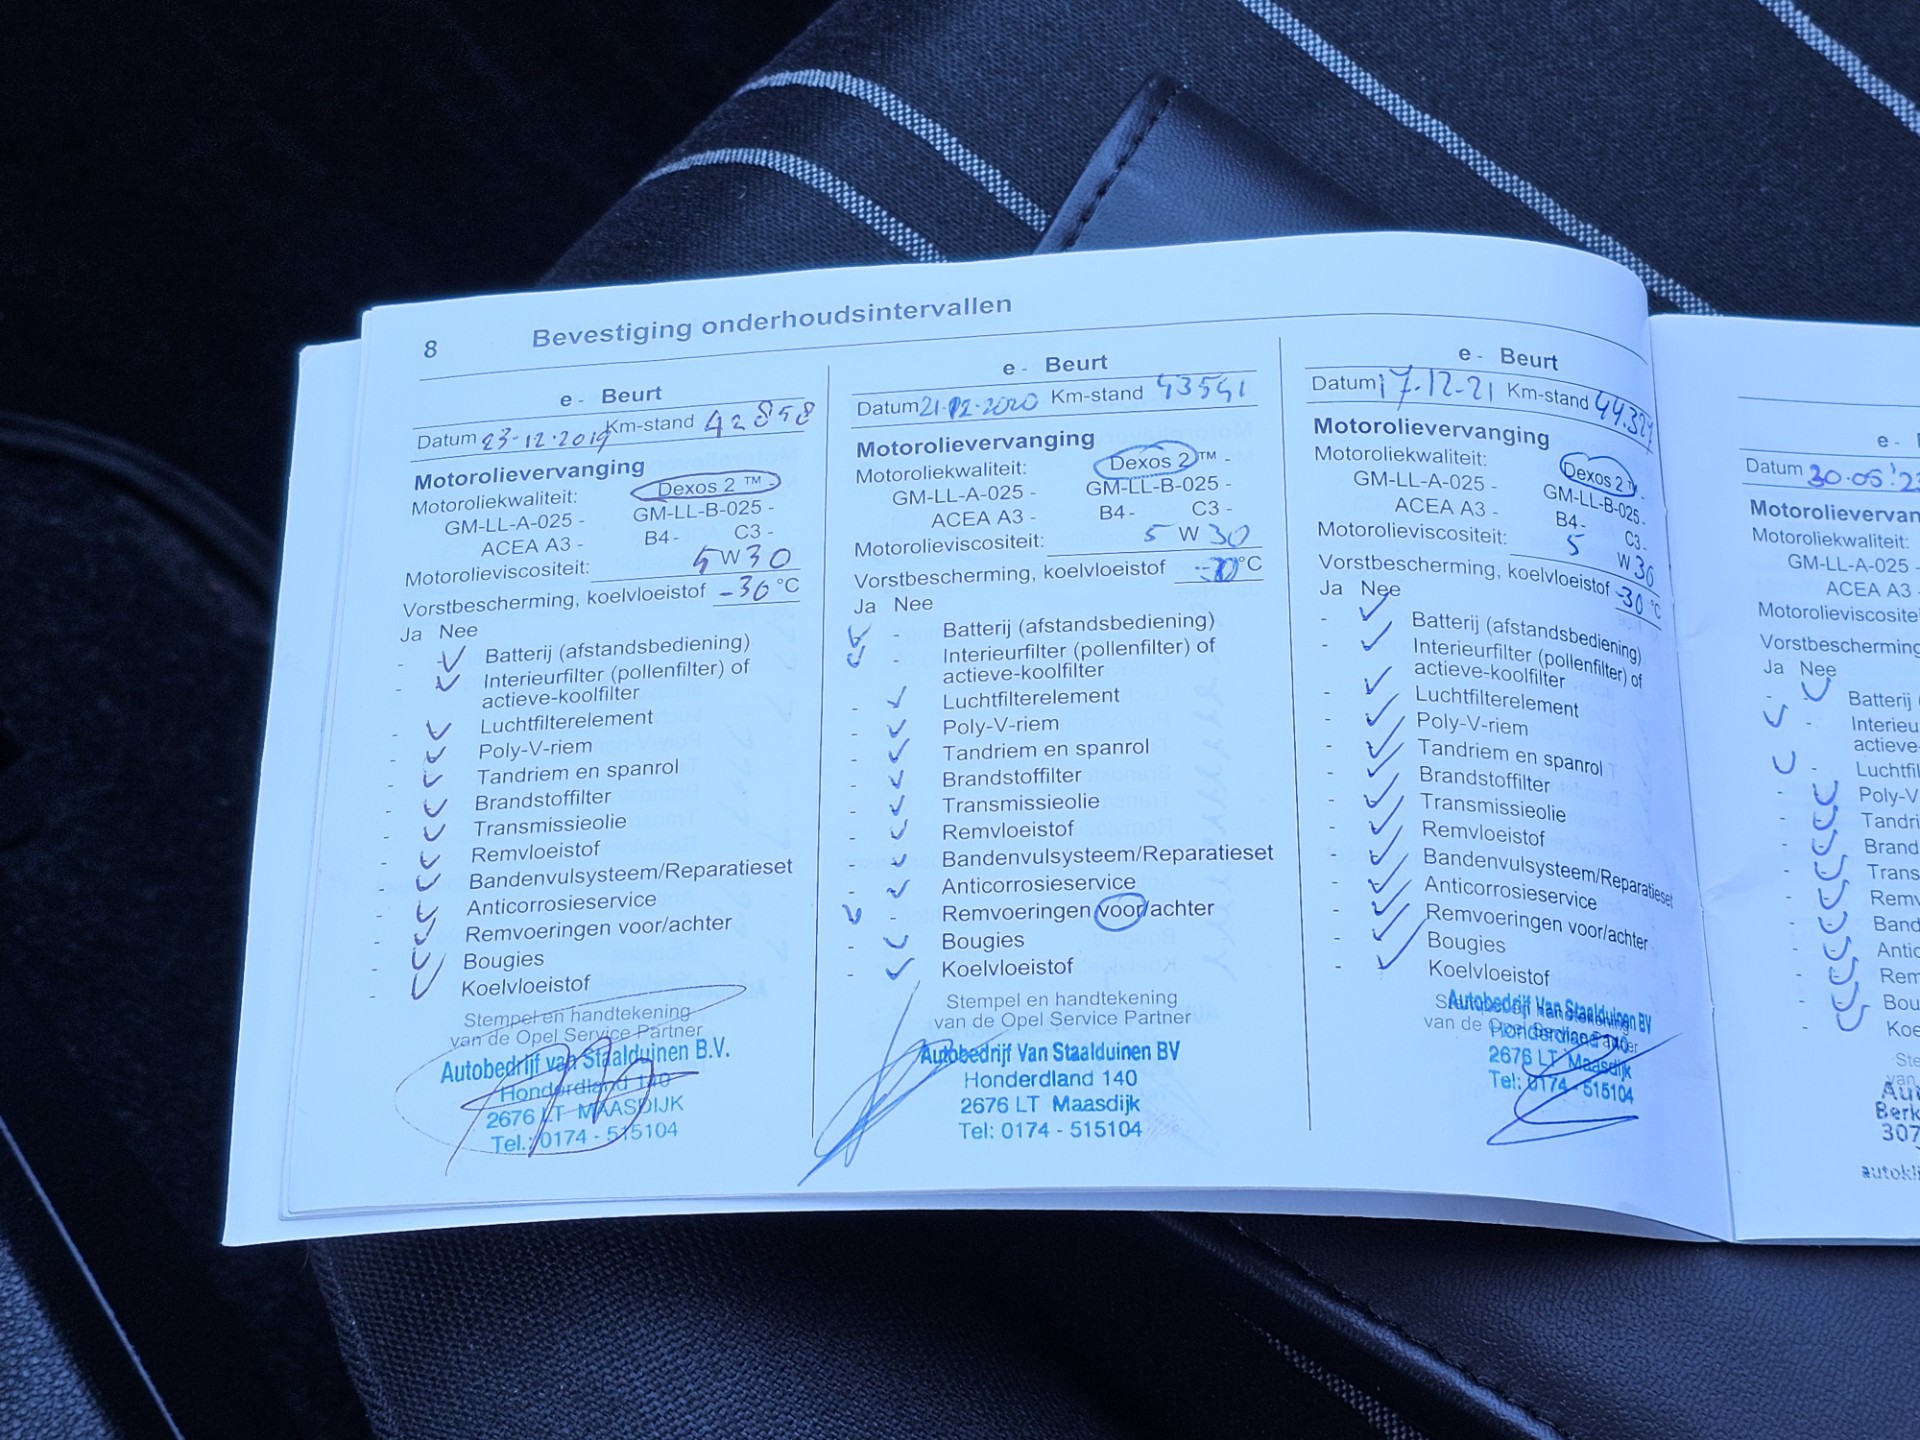 8 Bevestiging onderhoudsintervallen
e - Beurt
Datum 23-12-2019 Km-stand 42898
Motorolievervanging
Motoroliekwaliteit: Dexos 2 ™ -
GM-LL-A-025 - GM-LL-B-025 -
ACEA A3 - B4 - C3 -
Motorolieviscositeit: 5 W 30
Vorstbescherming, koelvloeistof -30 °C
Ja Nee
Batterij (afstandsbediening)
Interieurfilter (pollenfilter) of
actieve-koolfilter
Luchtfilterelement
Poly-V-riem
Tandriem en spanrol
Brandstoffilter
Transmissieolie
Remvloeistof
Bandenvulsysteem/Reparatieset
Anticorrosieservice
Remvoeringen voor/achter
Bougies
Koelvloeistof
Stempel en handtekening
van de Opel Service Partner
Autobedrijf van Staalduinen B.V.
Honderdland 140
2676 LT MAASDIJK
Tel.: 0174 - 515104
e - Beurt
Datum 21-12-2020 Km-stand 43541
Motorolievervanging
Motoroliekwaliteit: Dexos 2 ™ -
GM-LL-A-025 - GM-LL-B-025 -
ACEA A3 - B4 - C3 -
Motorolieviscositeit: 5 W 30
Vorstbescherming, koelvloeistof °C
Ja Nee
Batterij (afstandsbediening)
Interieurfilter (pollenfilter) of
actieve-koolfilter
Luchtfilterelement
Poly-V-riem
Tandriem en spanrol
Brandstoffilter
Transmissieolie
Remvloeistof
Bandenvulsysteem/Reparatieset
Anticorrosieservice
Remvoeringen voor/achter
Bougies
Koelvloeistof
Stempel en handtekening
van de Opel Service Partner
Autobedrijf Van Staalduinen BV
Honderdland 140
2676 LT Maasdijk
Tel: 0174 - 515104
e - Beurt
Datum 17-12-21 Km-stand 44.327
Motorolievervanging
Motoroliekwaliteit: Dexos 2 ™ -
GM-LL-A-025 - GM-LL-B-025 -
ACEA A3 - B4 - C3 -
Motorolieviscositeit: 5 W 30
Vorstbescherming, koelvloeistof -30 °C
Ja Nee
Batterij (afstandsbediening)
Interieurfilter (pollenfilter) of
actieve-koolfilter
Luchtfilterelement
Poly-V-riem
Tandriem en spanrol
Brandstoffilter
Transmissieolie
Remvloeistof
Bandenvulsysteem/Reparatieset
Anticorrosieservice
Remvoeringen voor/achter
Bougies
Koelvloeistof
Autobedrijf Van Staalduinen BV
van de
Honderdland 140
2676 LT Maasdijk
Tel: 0174 - 515104
e -
Datum 30-05-'23
Motorolievervan
Motoroliekwaliteit:
GM-LL-A-025 -
ACEA A3 -
Motorolieviscositei
Vorstbescherming
Ja Nee
Batterij
Interieu
actieve-
Luchtfil
Poly-V
Tandri
Brand
Trans
Remv
Band
Antic
Rem
Bou
Koe
Ste
van
Au
Berk
307
autokli